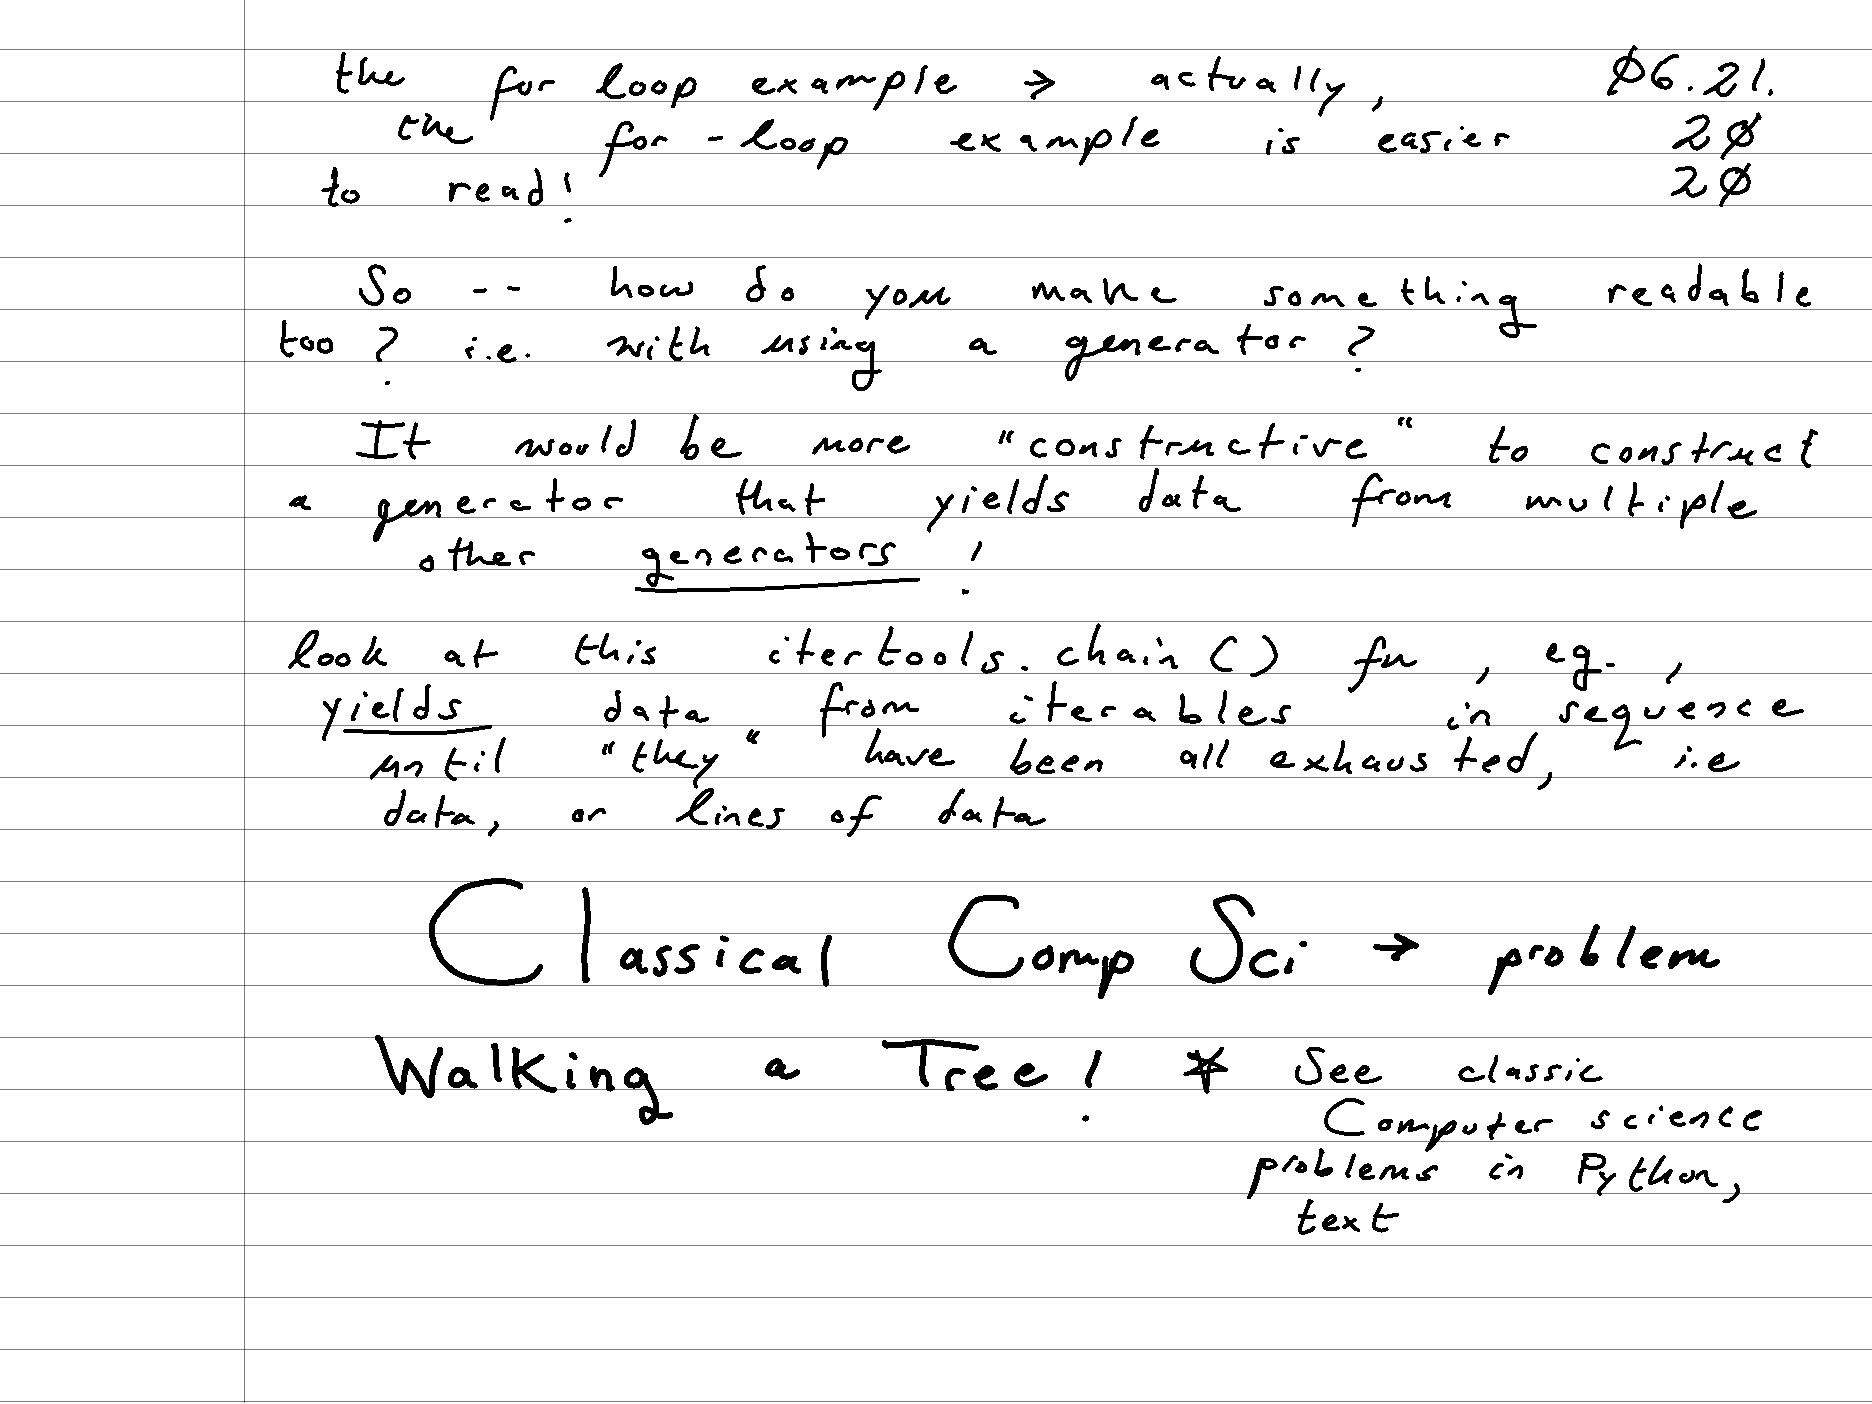 the for loop example → actually, Ø6.21.
the for-loop example is easier 2Ø
to read! 2Ø
So -- how do you make something readable
too? i.e. with using a generator?
It would be more "constructive" to construct
a generator that yields data from multiple
other generators!
look at this itertools.chain() fn, eg.,
yields data from iterables in sequence
until "they" have been all exhausted, i.e
data, or lines of data
Classical Comp Sci → problem
Walking a Tree! * See classic
Computer science
problems in Python,
text